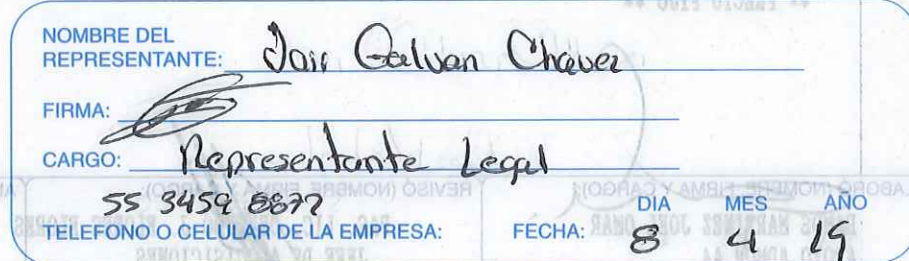 NOMBRE DEL
REPRESENTANTE: Jair Galvan Chavez
FIRMA:
CARGO: Representante Legal
55 3459 8872
TELEFONO O CELULAR DE LA EMPRESA:
FECHA: DIA MES AÑO
8 4 19